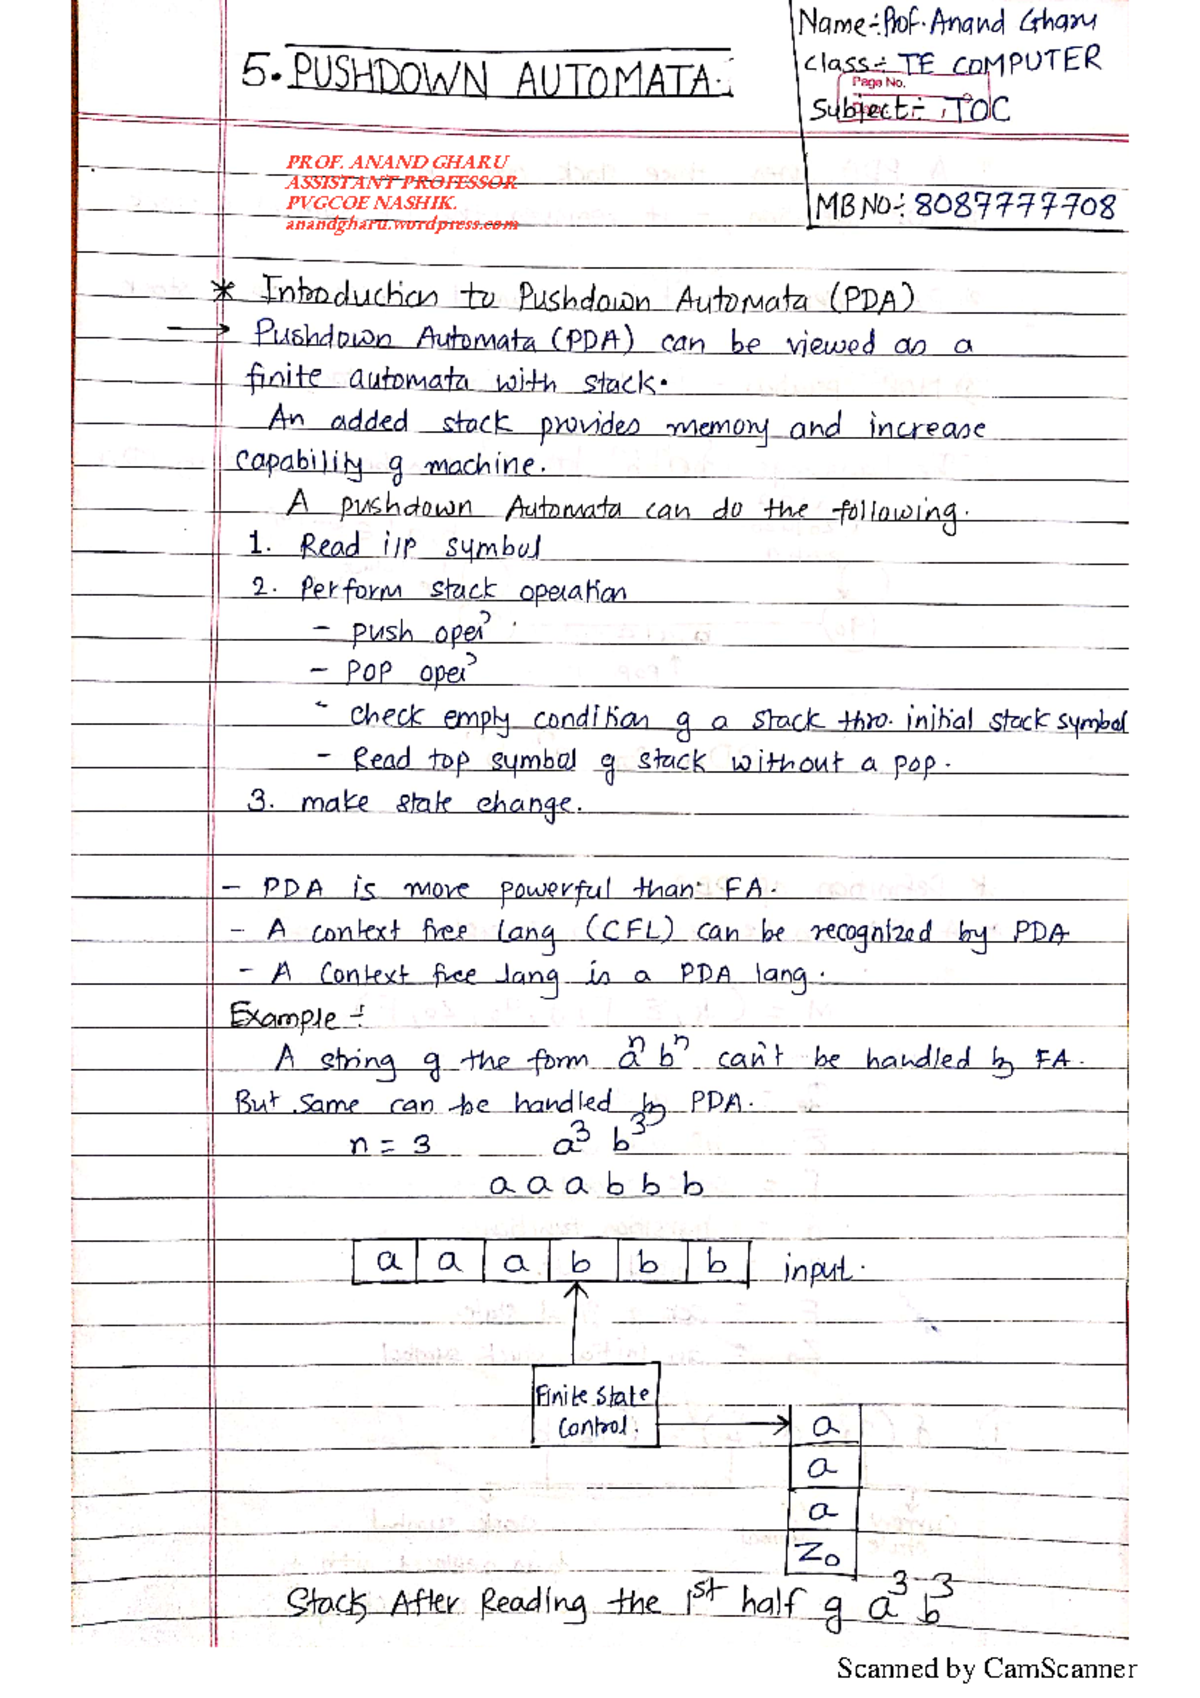 Name:- Prof. Anand Gharu
Class:- TE COMPUTER
Page No.
Subject:- TOC
5. PUSHDOWN AUTOMATA.
PROF. ANAND GHARU
ASSISTANT PROFESSOR
PVGCOE NASHIK.
anandgharu.wordpress.com
MB NO:- 8087777708
* Introduction to Pushdown Automata (PDA)
→ Pushdown Automata (PDA) can be viewed as a
finite automata with stack.
An added stack provides memory and increase
capability of machine.
A pushdown Automata can do the following.
1. Read i/p symbol
2. Perform stack operation
- push oper^n
- POP oper^n
- check empty condition of a stack thro. initial stack symbol
- Read top symbol of stack without a pop.
3. make state change.
- PDA is more powerful than FA.
- A context free lang (CFL) can be recognized by PDA
- A Context free lang is a PDA lang.
Example :-
A string of the form a^n b^n can't be handled by FA.
But same can be handled by PDA.
n = 3 a^3 b^3
a a a b b b
a a a b b b input.
Finite State
Control.
a
a
a
Z0
Stack After Reading the 1st half of a^3 b^3
Scanned by CamScanner